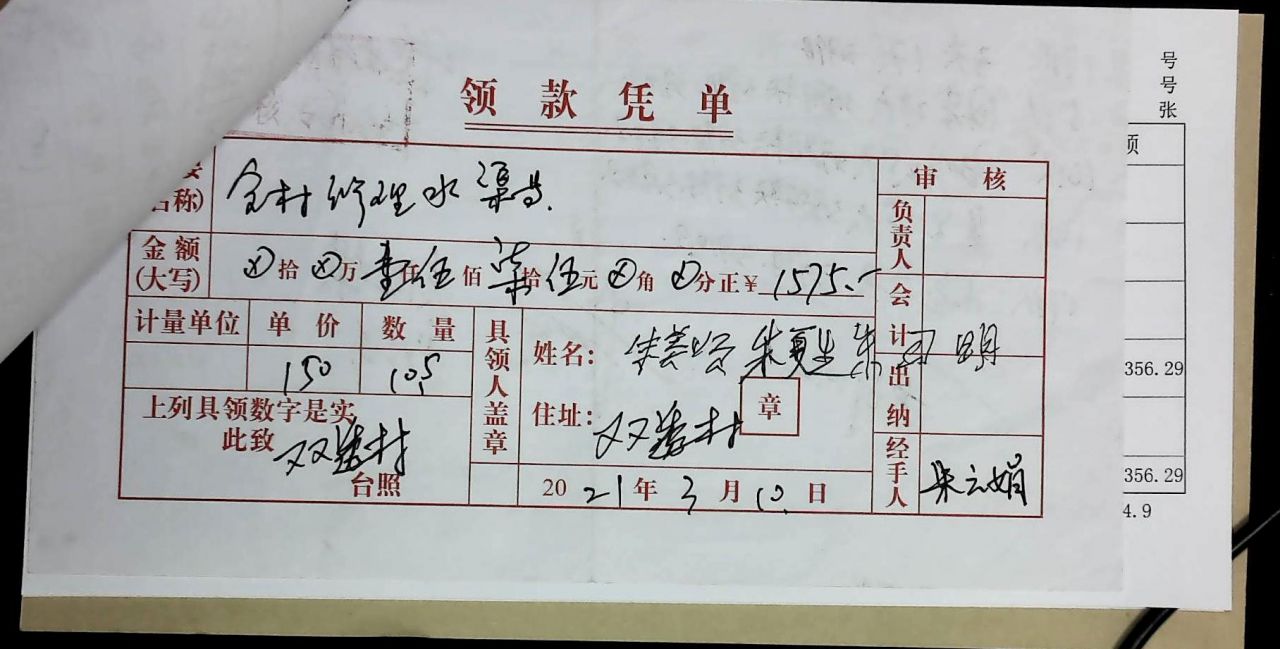 领款凭单
名称)
全村修理水渠费.
审核
负责人
金额
(大写)
⊗拾⊗万壹仟伍佰柒拾伍元⊗角⊗分正¥1575.-
会计
计量单位 单价 数量
150 10.5
具领人盖章
姓名: 朱夏生 朱 明
住址: 双 村
章
出纳
上列具领数字是实
此致 双 村
台照
2021年3月10日
经手人
朱云娟
号
号
张
356.29
356.29
4.9